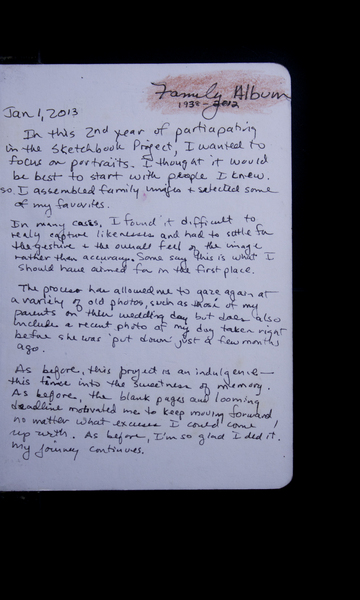 Family Album
1938-2012
Jan 1, 2013
In this 2nd year of participating
in the Sketchbook Project, I wanted to
focus on portraits. I thought it would
be best to start with people I knew.
so I assembled family images + selected some
of my favorites.
In many cases, I found it difficult to
really capture likenesses and had to settle for
the gesture + the overall feel of the image
rather than accuracy. Some say this is what I
should have aimed for in the first place.
The process has allowed me to gaze again at
a variety of old photos, such as those of my
parents on their wedding day but does also
include a recent photo of my dog taken right
before she was 'put down' just a few months
ago.
As before, this project is an indulgence—
this time into the sweetness of memory.
As before, the blank pages and looming
deadline motivated me to keep moving forward,
no matter what excuses I could come
up with. As before, I'm so glad I did it.
My journey continues.